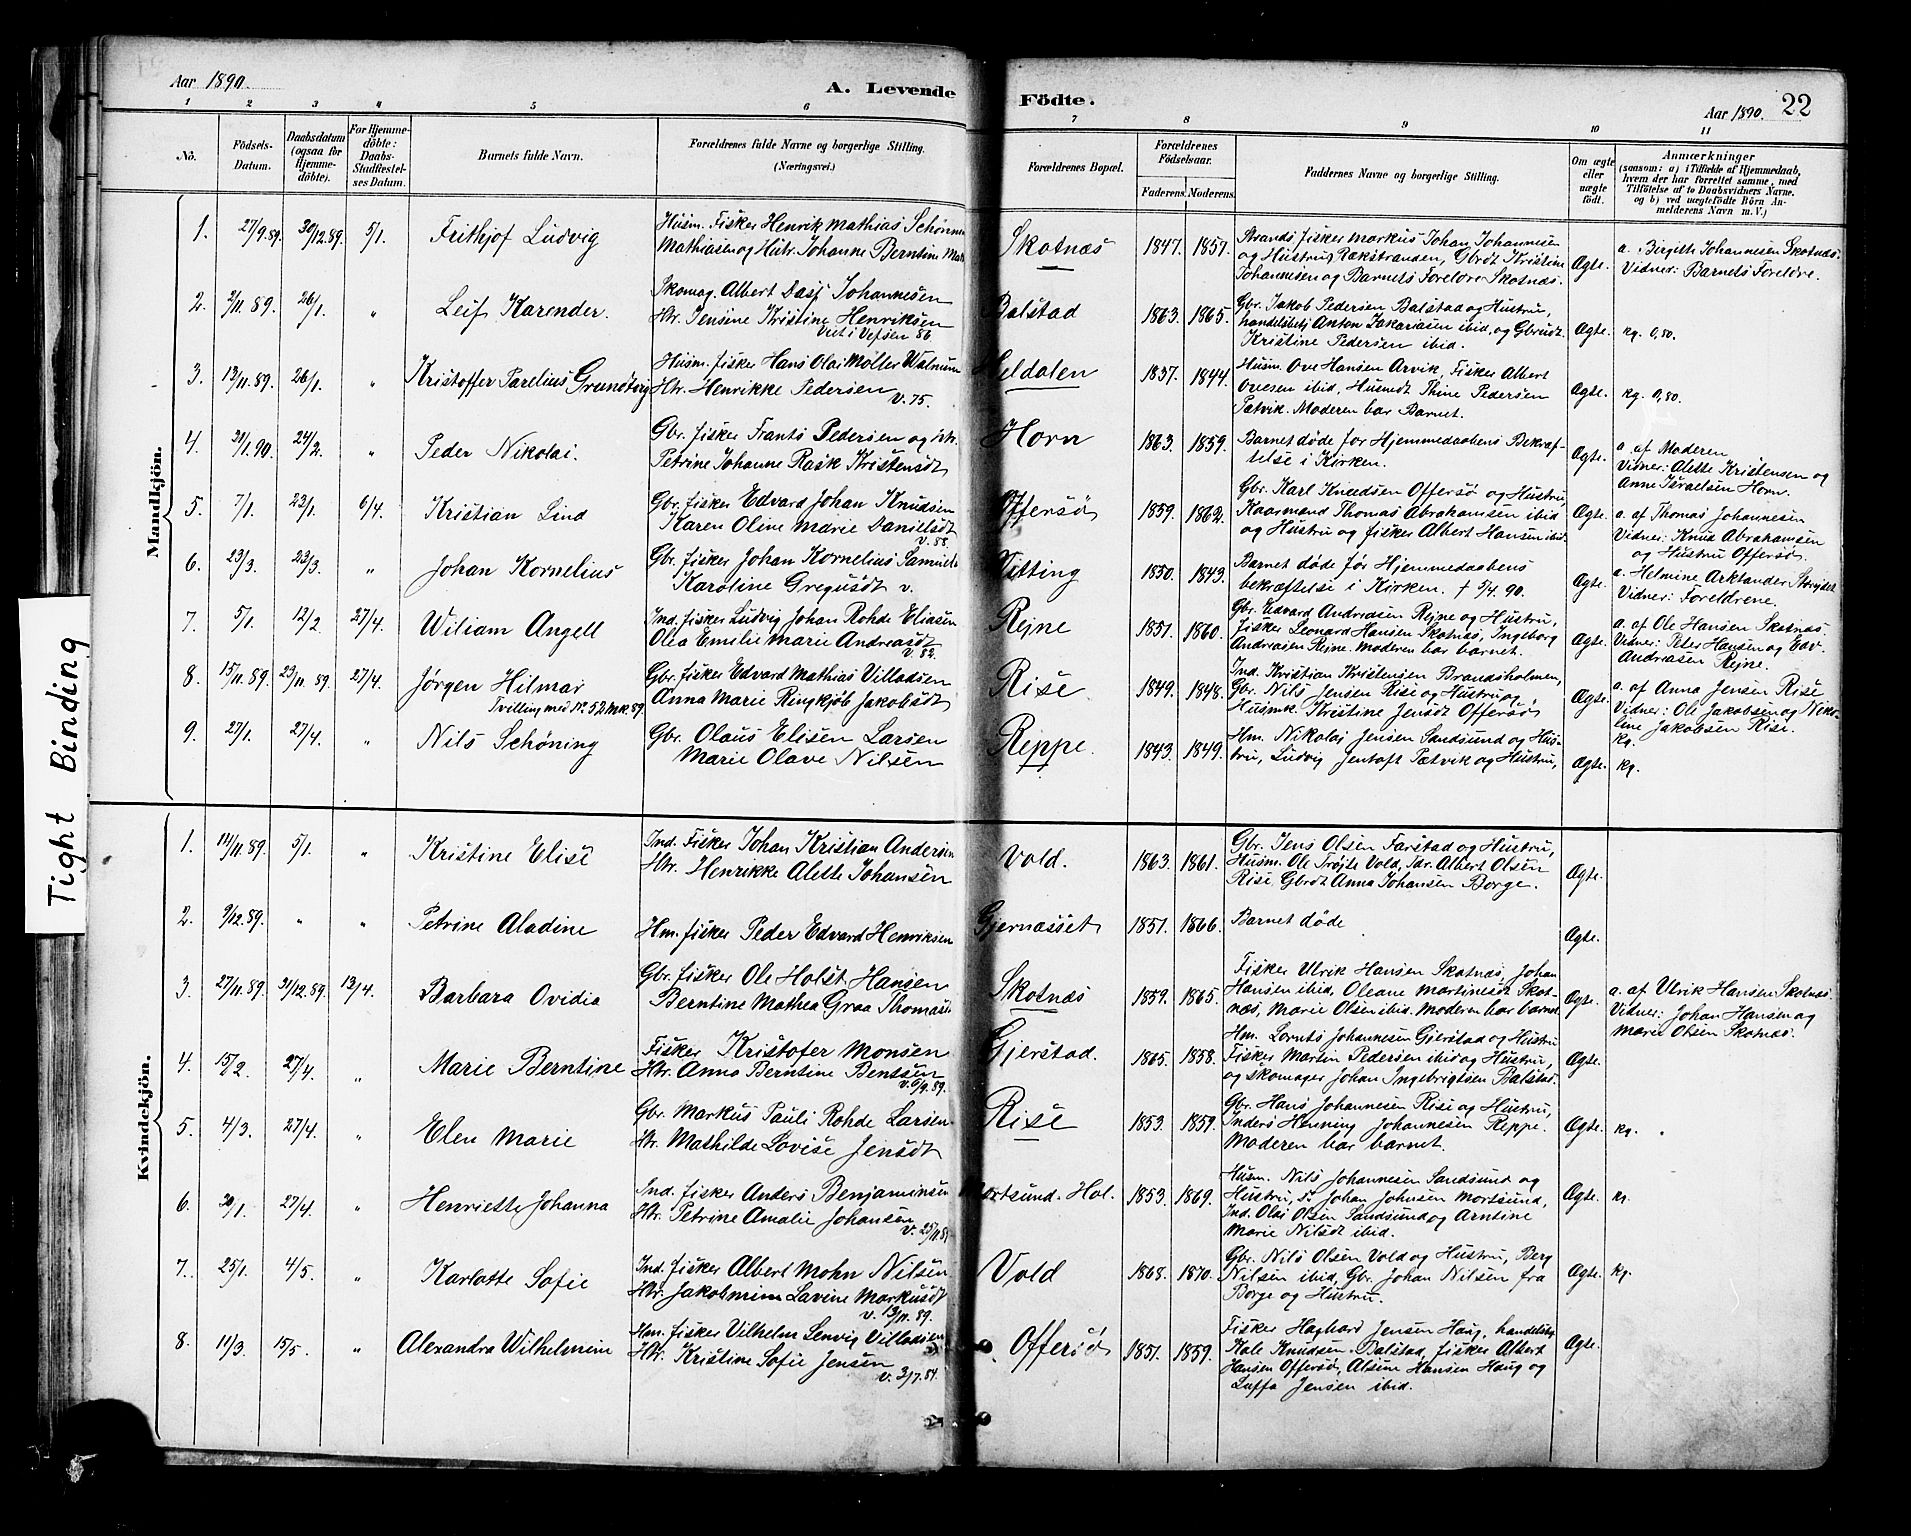 Aar 1890.
A. Levende Födte.
Aar 1890. 22
1 2 3 4 5 6 7 8 9 10 11
No.
Födsels-Datum.
Daabsdatum (ogsaa for Hjemme-döbte).
For Hjemme-döbte: Daabs-Stadfæstel-ses Datum.
Barnets fulde Navn.
Forældrenes fulde Navne og borgerlige Stilling. (Næringsvei.)
Forældrenes Bopæl.
Forældrenes Födselsaar.
Faderens. Moderens.
Faddernes Navne og borgerlige Stilling.
Om ægte eller uægte födt.
Anmærkninger
(saasom: a) i Tilfælde af Hjemmedaab,
hvem der har forrettet samme, med
Tilföielse af to Daabsvidners Navne.
og b) ved uægtefödte Börn An-
melderens Navn m. V.)
Mandkjön.
1. 27/9.89. 30/12.89. 5/1. Frithjof Ludvig
Husm. Fisker Henrik Mathias Schønn
Mathiasen og Hstr. Johanne Berntine
Skotnæs 1847. 1857.
Strands. fisker Markus Johan Johannesen
og Hustru Rækstranden, Gbrdt Kristine
Johannesen og Barnets Foreldre Skotnæs.
Ægte.
a. Birgith Johannesen Skotnæs.
Vidner: Barnets Foreldre.
2. 2/11 89. 26/1. " Leif Karender.
Skomag. Albert Dass Johannesen
Htr. Jensine Kristine Henriksen
Viet i Vefsen 86
Balstad 1863. 1865.
Gbr. Jakob Pedersen Balstad og Hustru,
handelsbetj Anton Zakariasen ibid, og Gbrdt.
Kristine Pedersen ibid.
Ægte. kg. 0,80.
3. 13/11.89. 26/1. " Kristoffer Parelius Grundtvig
Husm. fisker Hans Olai Møller Walnum
Htr. Henrikke Pedersen
v. 75.
Heldalen 1837. 1844.
Husm. Ove Hansen Arvik, Fisker Albert
Ovesen ibid, Husmdt Thine Pedersen
Petvik. Moderen bar Barnet.
Ægte. kg. 0,80.
4. 31/1.90. 24/2. " Peder Nikolai.
Gbr. fisker Frants Pedersen og Htr.
Petrine Johanne Rask Kristensdt
Horn 1863. 1859.
Barnet døde før Hjemmedaabens Bekræf-
telse i Kirken.
Ægte.
a. af Moderen
Vidner: Alette Kristensen og
Anne Israelsen Horn.
5. 7/1. 23/1. 6/4. Kristian Lind
Gbr. fisker Edvard Johan Knudsen
Karen Oline Marie Danielsdt
v. 88.
Offersø 1859. 1862.
Gbr. Karl Knudsen Offersø og Hustru,
Kaarmand Thomas Abrahamsen ibid
og Hustru og fisker Albert Hansen ibid.
Ægte.
a. af Thomas Johannesen
Vidner: Knud Abrahamsen
og Hustru Offersø.
6. 23/3. 23/3. " Johan Kornelius
Gbr. fisker Johan Kornelius
Karoline Gregusdt v.
1850. 1843.
Barnet døde før Hjemmedaabens
bekræftelse i Kirken. † 5/4. 90.
Ægte.
a. Helmine Arktander
Vidner: Foreldrene.
7. 5/1. 12/2. 27/4. Wiliam Angell
Ind. fisker Ludvig Johan Rohde Eliasen
Olea Emilie Marie Andreasdt
v. 82.
Rejne 1851. 1860.
Gbr. Edvard Andreasen Rejne og Hustru,
Fisker Leonard Hansen Skotnæs, Ingeborg
Andreasen Rejne. Moderen bar barnet.
Ægte.
a. af Ole Hansen Skotnæs.
Vidner: Peter Hansen og Edv.
Andreasen Rejne.
8. 15/11.89. 23/11. 89. 27/4. Jørgen Hilmar
Tvilling med No. 52 mk. 89.
Gbr. fisker Edvard Mathias Villadsen
Anna Marie Ringkjøb Jakobsdt
Rise 1849. 1848.
Ind. Kristian Kristensen Brandsholmen,
Gbr. Nils Jensen Rise og Hustru og
Husmk. Kristine Jensdt Offersø
Ægte.
a. af Anna Jensen Rise
Vidner: Ole Jakobsen og Niko-
line Jakobsen Rise.
kg.
9. 27/1. 27/4. " Nils Schøning
Gbr. Olaus Elisen Larsen
Marie Olave Nilsen
Reppe. 1843. 1849.
Hm. Nikolaj Jensen Sandsund og Hus-
tru, Ludvig Jentoft Petvik og Hustru,
Ægte. kg.
Kvindekjön.
1. 14/11.89. 5/1. " Kristine Elise
Ind. Fisker Johan Kristian Andersen
Htr. Henrikke Alette Johansen
Vold. 1863. 1861.
Gbr. Jens Olsen Farstad og Hustru,
Husm. Ole Trøjte Vold, Idr. Albert Olsen
Rise, Gbrdt Anna Johansen Borge.
Ægte.
2. 9/12.89. " " Petrine Aladine
Hm. fisker Peder Edvard Henriksen
Gjernæsset 1851. 1866.
Barnet døde
Ægte.
3. 27/11.89. 31/12.89. 13/4. Barbara Ovidia
Gbr. fisker Ole Holst Hansen
Berntine Mathea Graa Thomas
Skotnæs 1859. 1865.
Fisker Ulrik Hansen Skotnæs, Johan
Hansen ibid, Oleane Martinsdt Skot-
næs, Marie Olsen ibid. Moderen bar barnet
Ægte.
a. af Ulrik Hansen Skotnæs.
Vidner: Johan Hansen og
Marie Olsen Skotnæs.
4. 15/2. 27/4. " Marie Berntine
Fisker Kristofer Monsen
Htr. Anna Berntine Bentsen
v. 6/9.89.
Gjerstad. 1865. 1858.
Hm. Lornts Johannesen Gjerstad og Hustru
Fisker Martin Pedersen ibid og Hustru,
og skomager Johan Ingebrigtsen Balstad.
Ægte.
5. 4/3. 27/4. " Elen Marie
Gbr. Markus Pauli Rohde Larsen
Htr. Mathilde Lovise Jensdt
Rise 1853. 1859.
Gbr. Hans Johannesen Rise og Hustru,
Inders Henning Johannesen Reppe.
Moderen bar barnet.
Ægte. kg.
6. 20/1. 27/4. " Henriette Johanna
Ind. fisker Anders Benjaminsen
Htr. Petrine Amalie Johansen
v. 25/11.88
Mortsund. Hol. 1853. 1869.
Husm. Nils Johannesen Sandsund og
Hustru, Johan Johnsen Mortsund,
Ind. Olai Olsen Sandsund og Arntine
Marie Nilsdt ibid.
Ægte. kg.
7. 25/1. 4/5. " Karlotte Sofie
Ind. fisker Albert Mohn Nilsen
Htr. Jakobmine Lavine Markusdt
v. 13/11.89.
Vold 1868. 1870.
Gbr. Nils Olsen Vold og Hustru, Berg
Nilsen ibid, Gbr. Johan Nilsen fra
Borge og Hustru.
Ægte. kg.
8. 11/3. 15/5. " Alexandra Wilhelmine
Hm. fisker Vilhelm Lenvig Villadsen
Htr. Kristine Sofie Jensen
v. 3/7.84.
Offersø 1851. 1859.
Fisker Hagbard Jensen Haug, handelsbg.
Kole Knudsen Balstad, fisker Albert
Hansen Offersø, Alsine Hansen Haug og
Luffa Jensen ibid.
Ægte.
Tight Binding